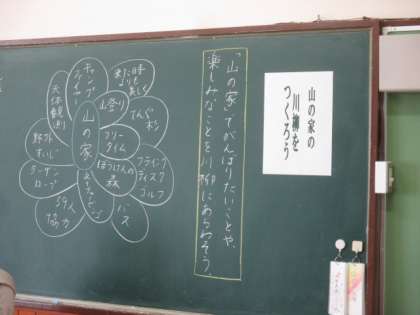 山の家の
川柳を
つくろう
「山の家」でがんばりたいことや、
楽しみなことを川柳にあらわそう。
山の家
キャンプ
ファイヤー
山登り
てんぐ
杉
フリー
タイム
ぼうけんの
森
フライング
ディスク
ゴルフ
バス
59人
協力
ターザン
ロープ
野外
すいじ
天体観測